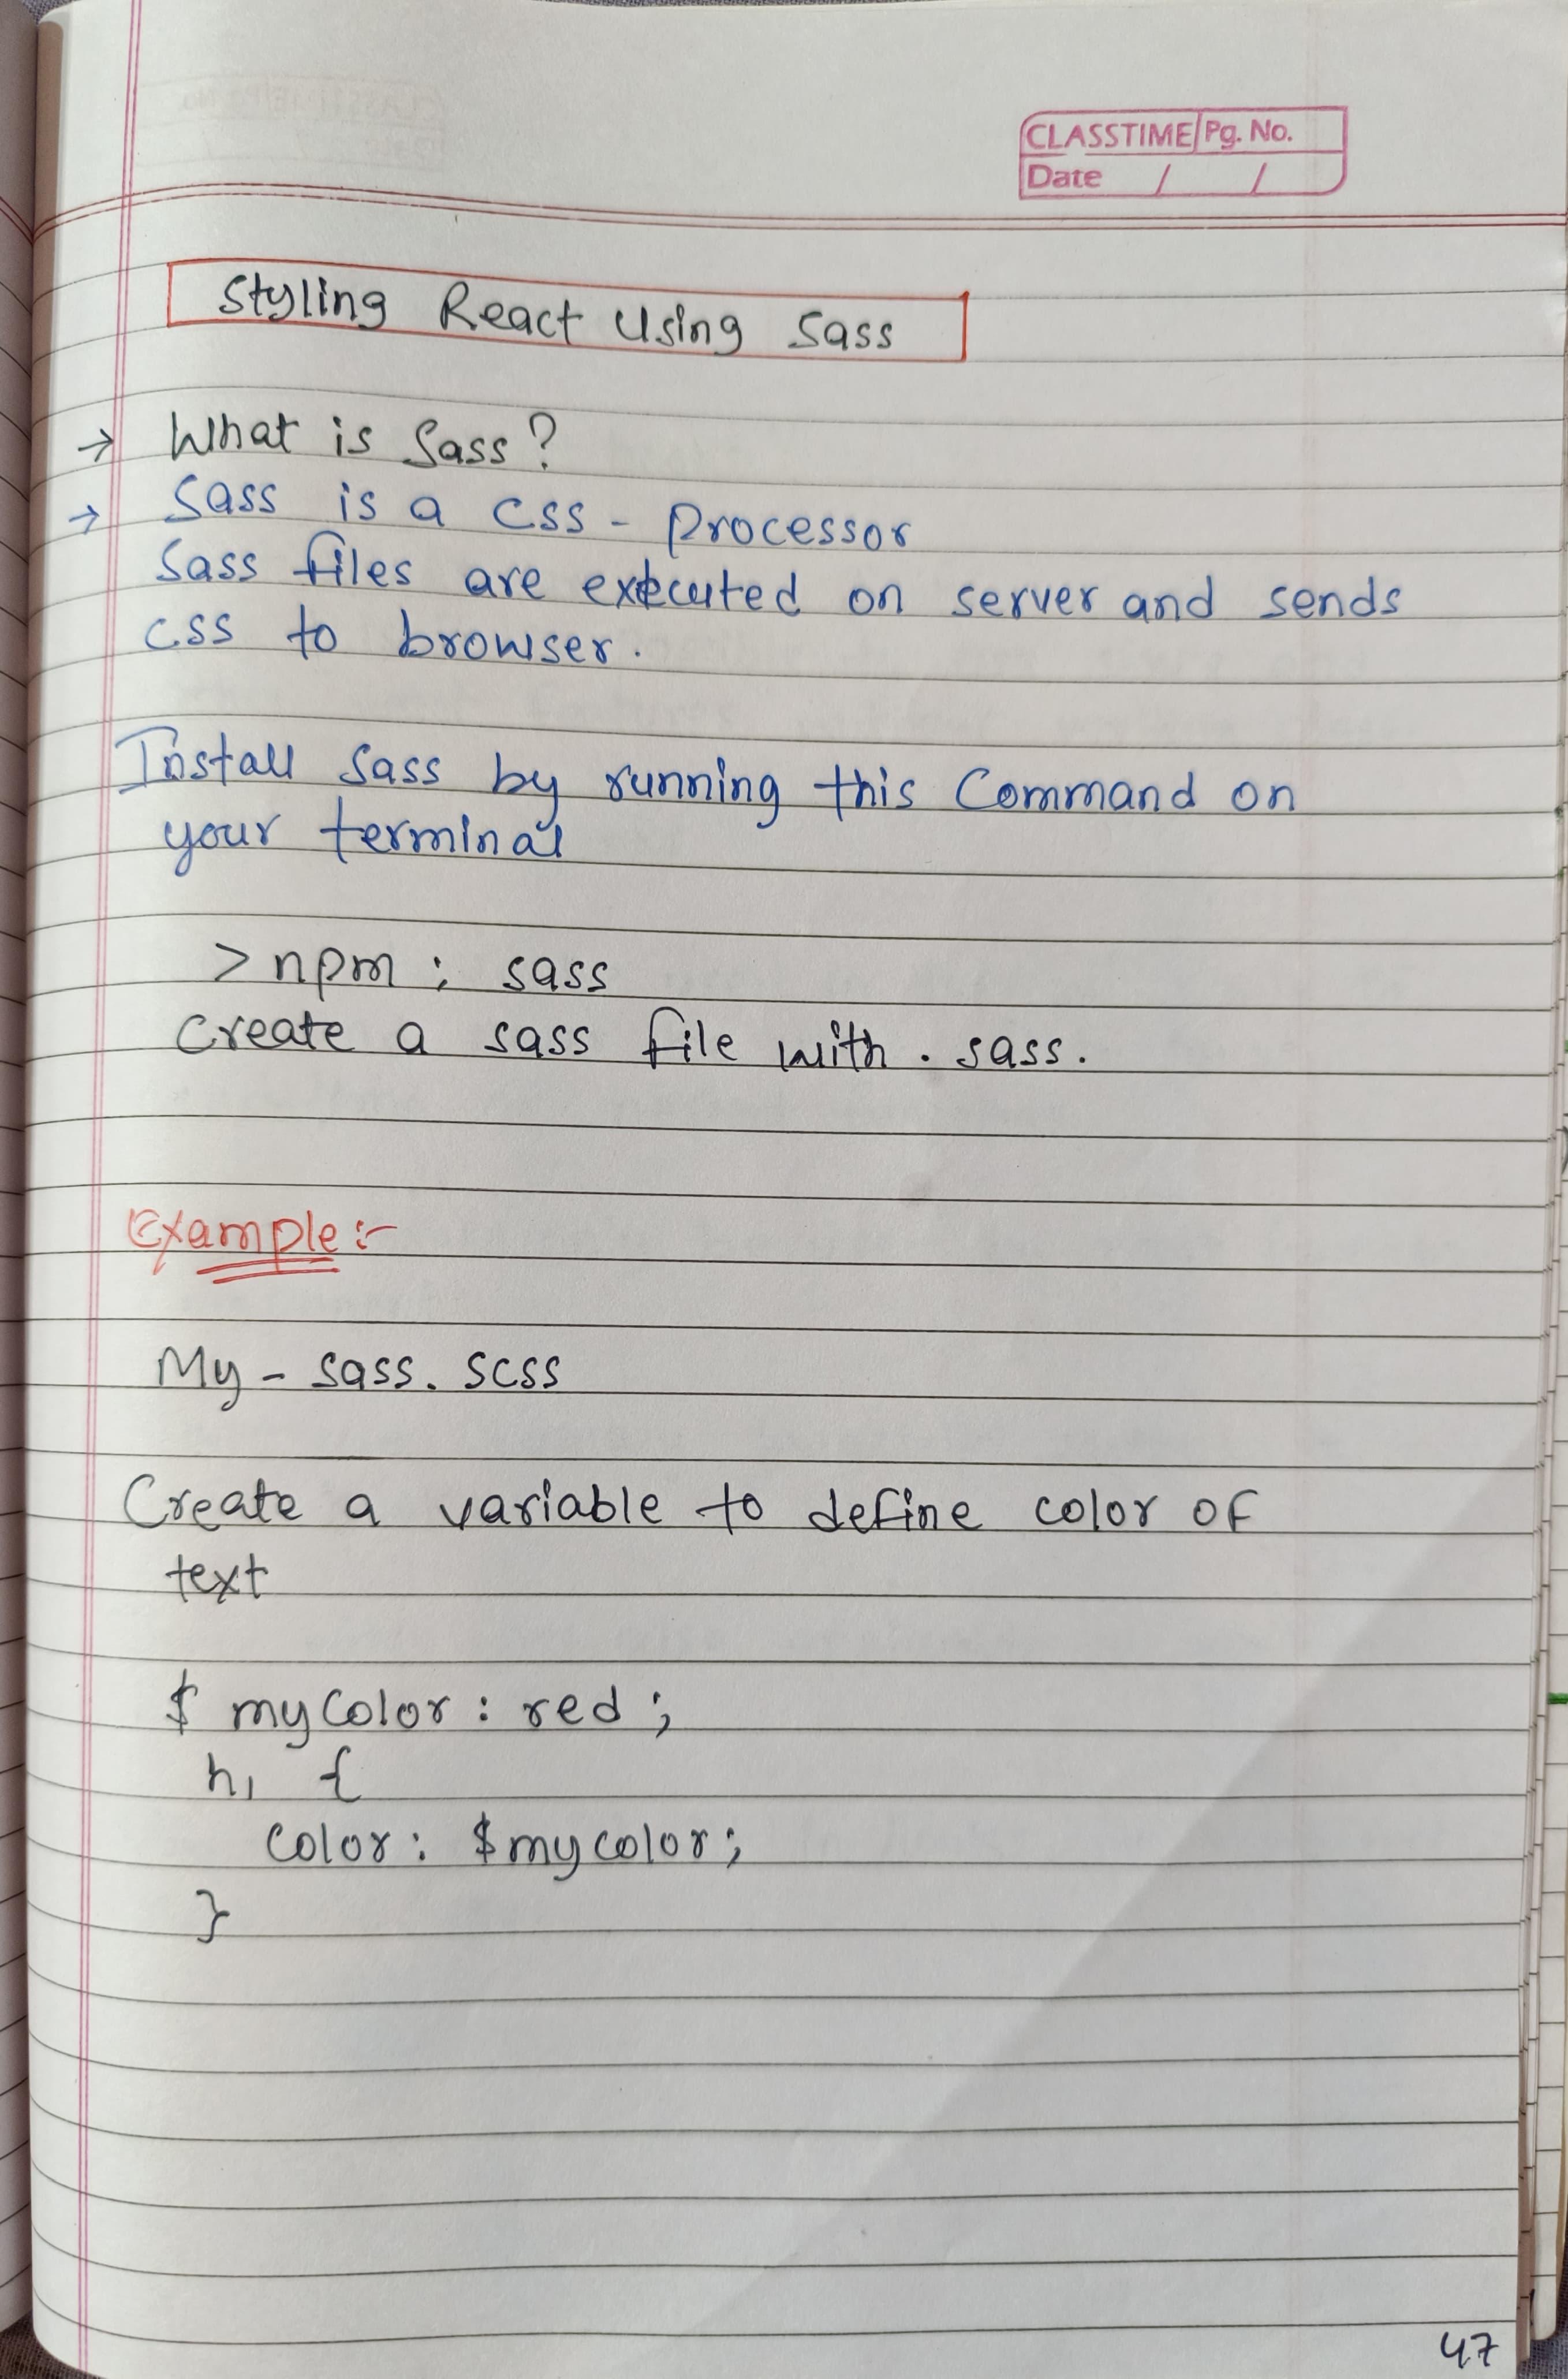 CLASSTIME Pg. No.
Date / /
Styling React Using Sass
→ What is Sass?
→ Sass is a css - processor
Sass files are executed on server and sends
css to browser.
Install Sass by running this Command on
your terminal
> npm i sass
Create a sass file with . sass.
Example :-
My - sass. scss
Create a variable to define color of
text
$ myColor : red ;
h1 {
color : $mycolor ;
}
47